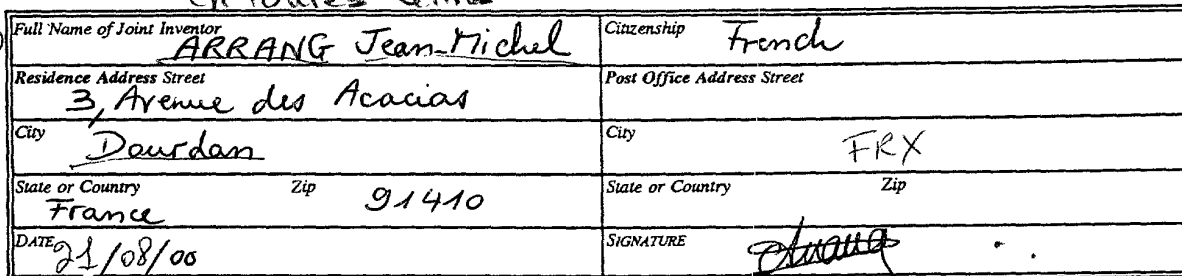 Full Name of Joint Inventor
ARRANG Jean-Michel
Citizenship
French
Residence Address Street
3, Avenue des Acacias
Post Office Address Street
City
Dourdan
City
FRX
State or Country Zip
France 91410
State or Country Zip
DATE
21/08/00
SIGNATURE